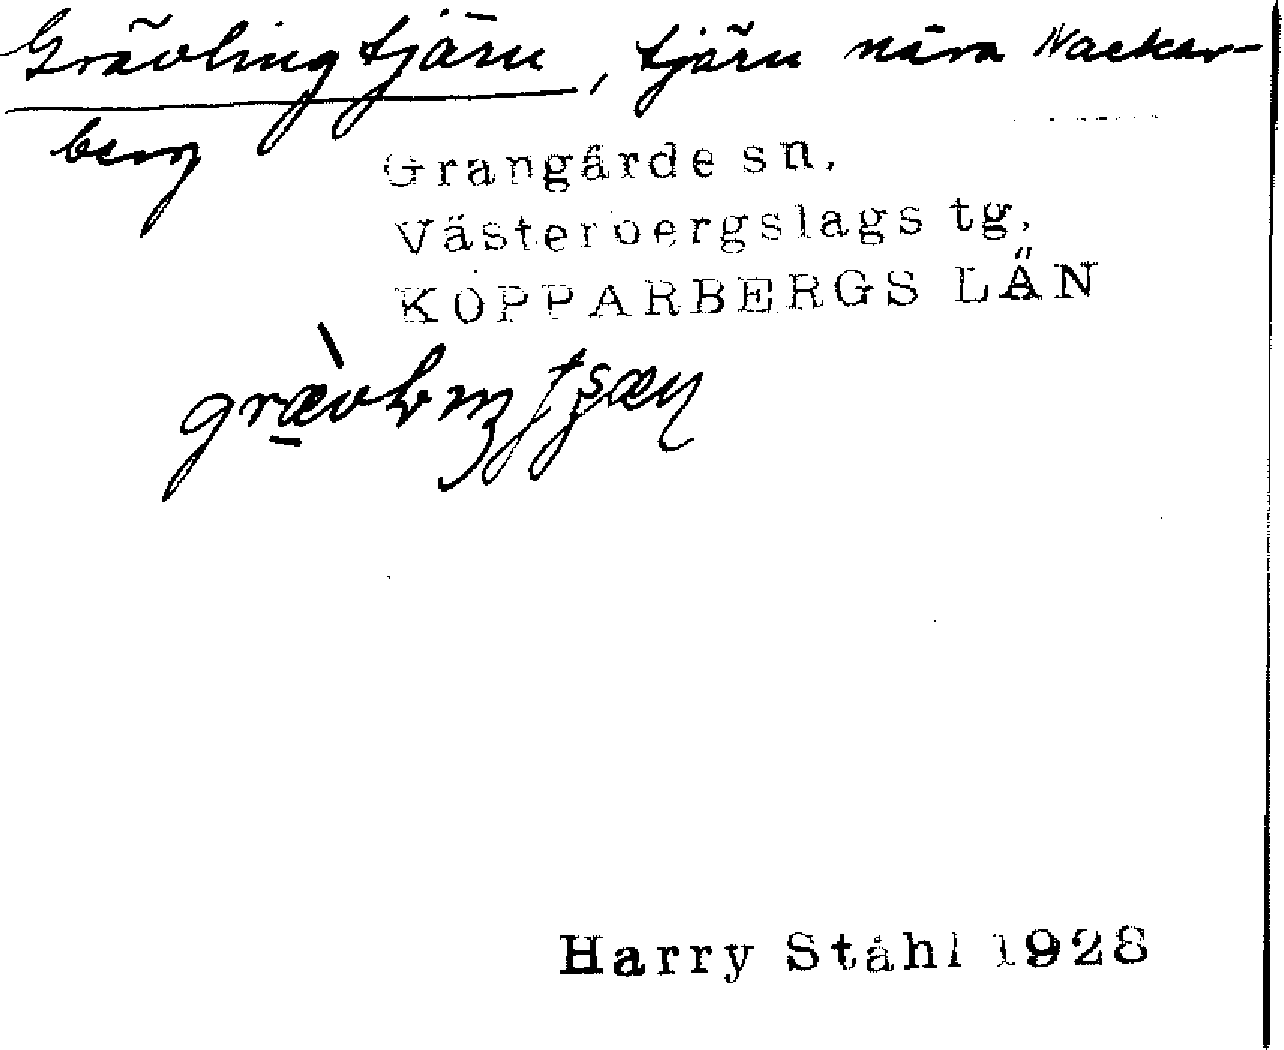 Grävlingtjärn, tjärn nära Nackar-
berg
Grangärde sn,
Västerbergslags tg,
KOPPARBERGS LÄN
Harry Ståhl 1928